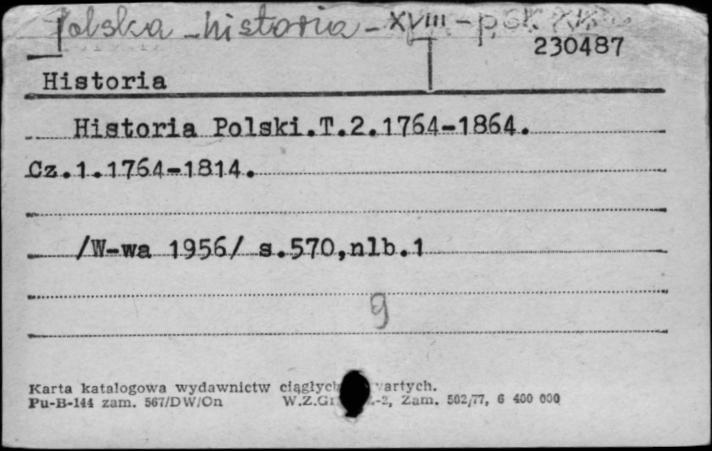 Polska - historia - XVIII - pocz.
230487
Historia
Historia Polski.T.2.1764-1864.
Cz.1.1764-1814.
/W-wa 1956/ s.570,nlb.1
g
Karta katalogowa wydawnictw ciągłych wartych.
Pu-B-144 zam. 567/DW/On W.Z.Gr -2, Zam. 502/77, 6 400 000